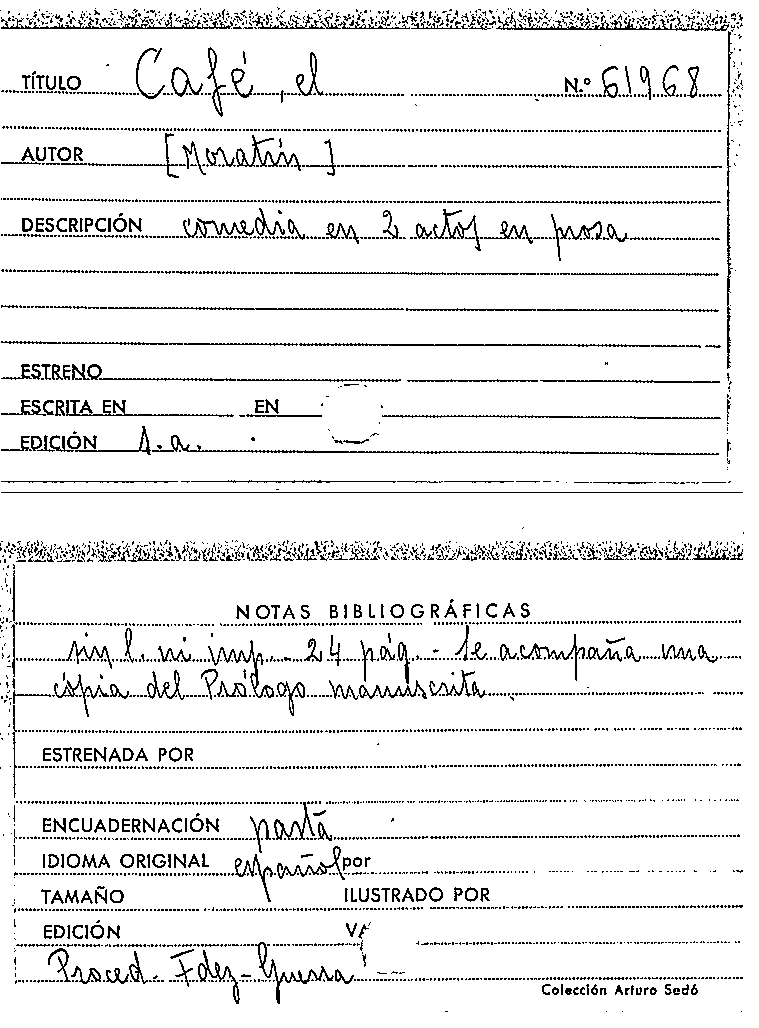 TÍTULO Café, el N.º 61968
AUTOR [Moratín]
DESCRIPCIÓN comedia en 2 actos en prosa
ESTRENO
ESCRITA EN EN
EDICIÓN s.a.
NOTAS BIBLIOGRÁFICAS
sin l. ni imp. - 24 pág. - Se acompaña una
cópia del Prólogo manuscrita
ESTRENADA POR
ENCUADERNACIÓN pasta
IDIOMA ORIGINAL español por
TAMAÑO ILUSTRADO POR
EDICIÓN
Proced. Fdez-Guerra
Colección Arturo Sedó